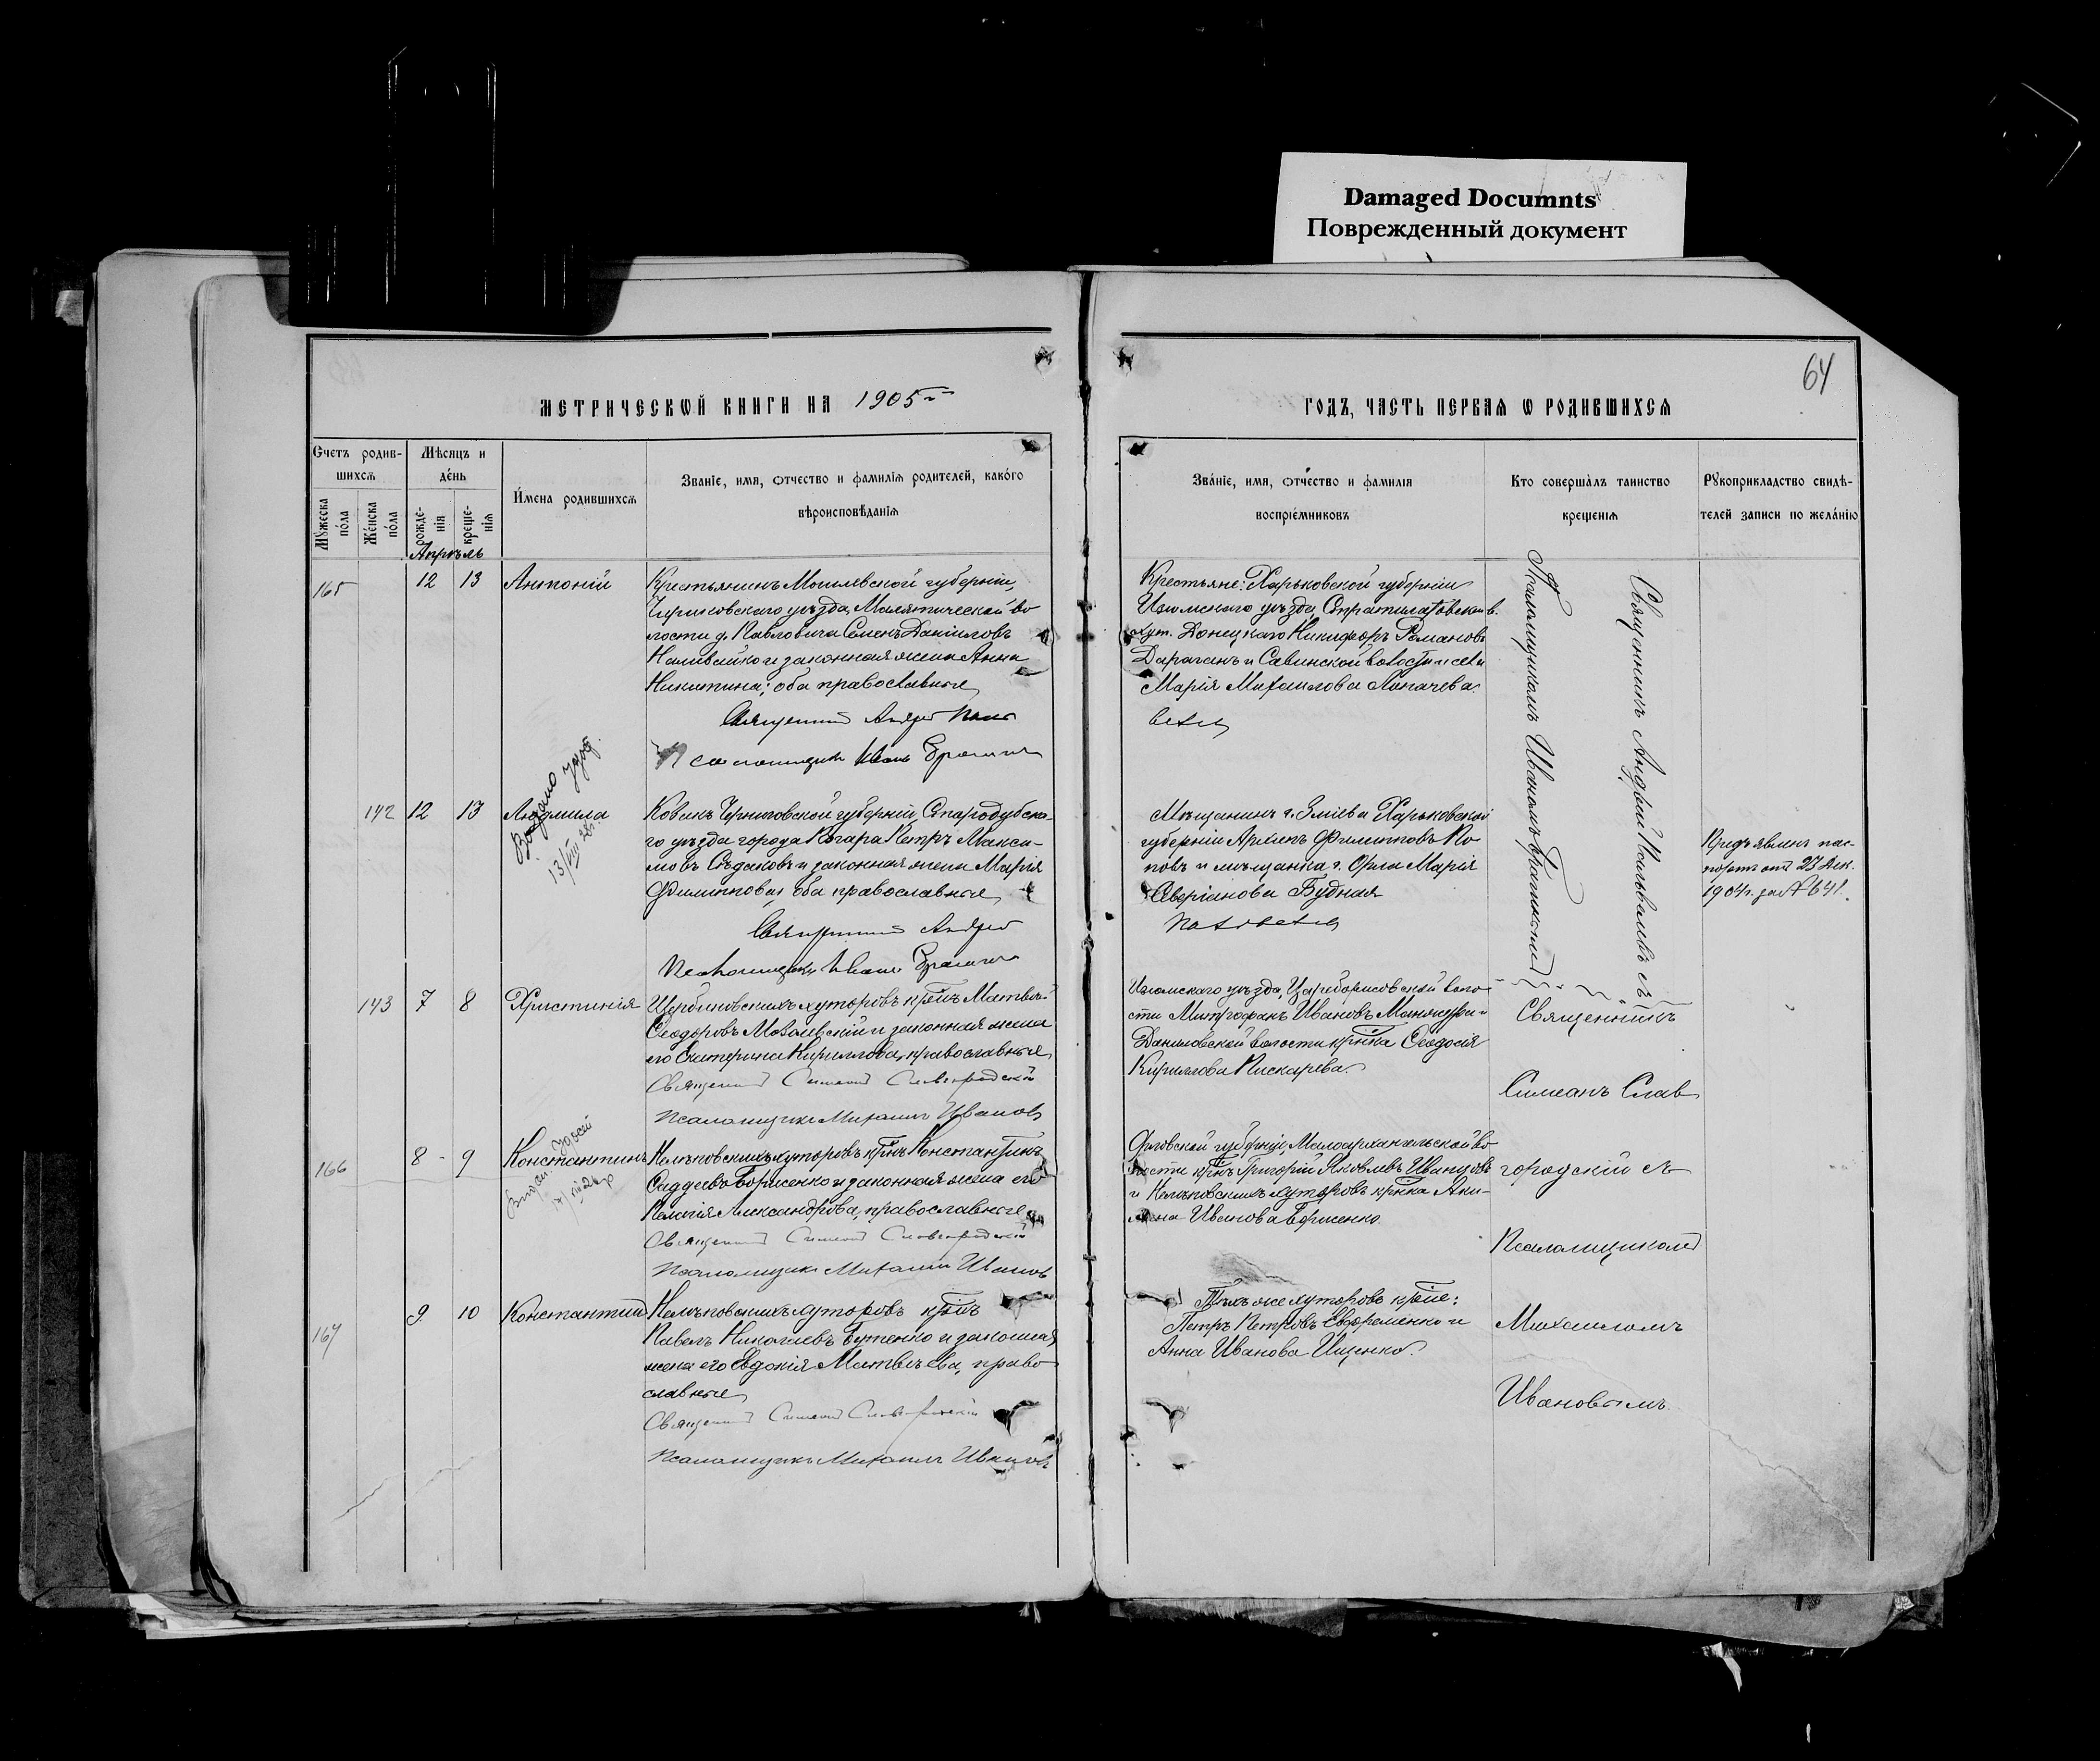 Damaged Documnts
Поврежденный документ
64
МЕТРИЧЕСКОЙ КНИГИ НА 1905
ГОДЪ, ЧАСТЬ ПЕРВАЯ Ѡ РОДИВШИХСѦ
Счетъ родив-
шихсѧ
Мѹжеска пола
Женска пола
Мѣсяцъ и
день
рожде-
нія
креще-
нія
Имена родившихсѧ
Званіе, имя, ѿчество и фамилія родителей, какого
вѣроисповѣданія
Званіе, имя, ѿчество и фамилія
воспріемниковъ
Кто совершалъ таинство
крещенія
Рѹкоприкладство свидѣ-
телей записи по желанію
Апрѣль
165
12 13
Антоній
Крестьянинъ Могилевской губерніи,
Чериковскаго уѣзда, Малятической во
лости д. Павловича Семенъ Даніиловъ
Наливайко и законная жена Анна
Никитина; оба православные
Священникъ Андрей
Псаломщикъ Иванъ
Крестьяне: Харьковской губерніи
Изюмскаго уѣзда, в.
хут. Донецкаго Никифоръ Романовъ
Дараганъ и Савинской волости и села
Марія Михаилова Лопачева.
Священникъ Андрей
Псаломщикомъ Иваномъ
142 12 13
Людмила
Выдано
Козакъ Черниговской губерніи, Стародубска-
го уѣзда города Погара Петръ Макси-
мовъ Сѣдаковъ и законная жена Марія
Филиппова, оба православные
Священникъ Андрей
Псаломщикъ Иванъ
Мѣщанинъ г. Зміева Харьковской
губерніи Архипъ Филипповъ По
повъ и мѣщанка г. Орла Марія
Аверіанова Будная
Предъявленъ пас-
портъ отъ 23 Дек.
1904 г. за № 641.
143 7 8
Христинія
Щербиновскихъ хуторовъ кр-нъ Матвѣй
Ѳеодоровъ и законная жена
его Екатерина Кириллова, православные
Священникъ Симеонъ Славгородскій
Псаломщикъ Михаилъ Ивановъ
Изюмскаго уѣзда, Цареборисовской воло-
сти Митрофанъ Ивановъ и
Даниловской волости кр-нка Ѳеодосія
Кириллова Пискарева.
Священникъ
Симеонъ Слав
166
8 - 9
Константинъ
Нелѣповскихъ хуторовъ кр-нъ Константинъ
Ѳаддеевъ Борисенко и законная жена его
Пелагія Александрова, православные
Священникъ Симеонъ Славгородскій
Псаломщикъ Михаилъ Ивановъ
Орловской губерніи, Малоархангельской во
лости кр-нъ Григорій Яковлевъ Иванцовъ
и Нелѣповскихъ хуторовъ кр-нка Аки-
лина Иванова Борисенко.
городскій съ
Псаломщикомъ
167
9. 10
Константинъ
Нелѣповскихъ хуторовъ кр-нъ
Павелъ Николаевъ Бутенко и законная
жена его Евдокія Матвѣева, право
славные
Священникъ Симеонъ Славгородскій
Псаломщикъ Михаилъ Ивановъ
Тѣхъ же хуторовъ кр-не:
Петръ Петровъ Ефременко и
Анна Иванова Ищенко.
Михаиломъ
Ивановымъ.